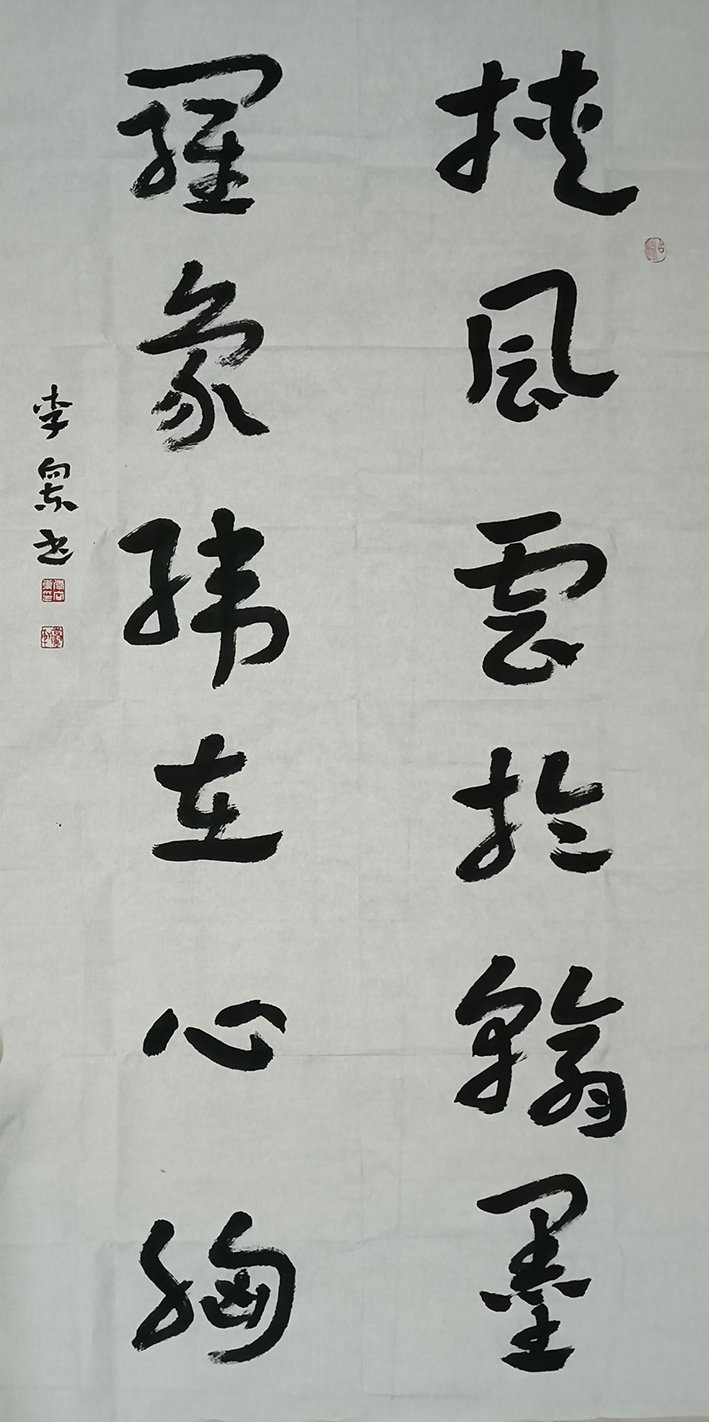 挟風雲於翰墨
羅象緯在心胸
李